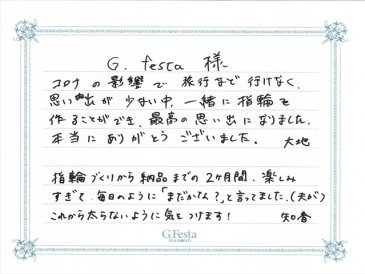 G. festa 様
コロナの影響で旅行など行けなく、
思い出が少ない中、一緒に指輪を
作ることができ、最高の思い出になりました。
本当にありがとうございました。 大地
指輪づくりから納品までの2ヶ月間、楽しみ
すぎて、毎日のように「まだかな?」と言ってました。(夫が)
これから太らないように気をつけます! 知香
G.Festa
DIAMOND